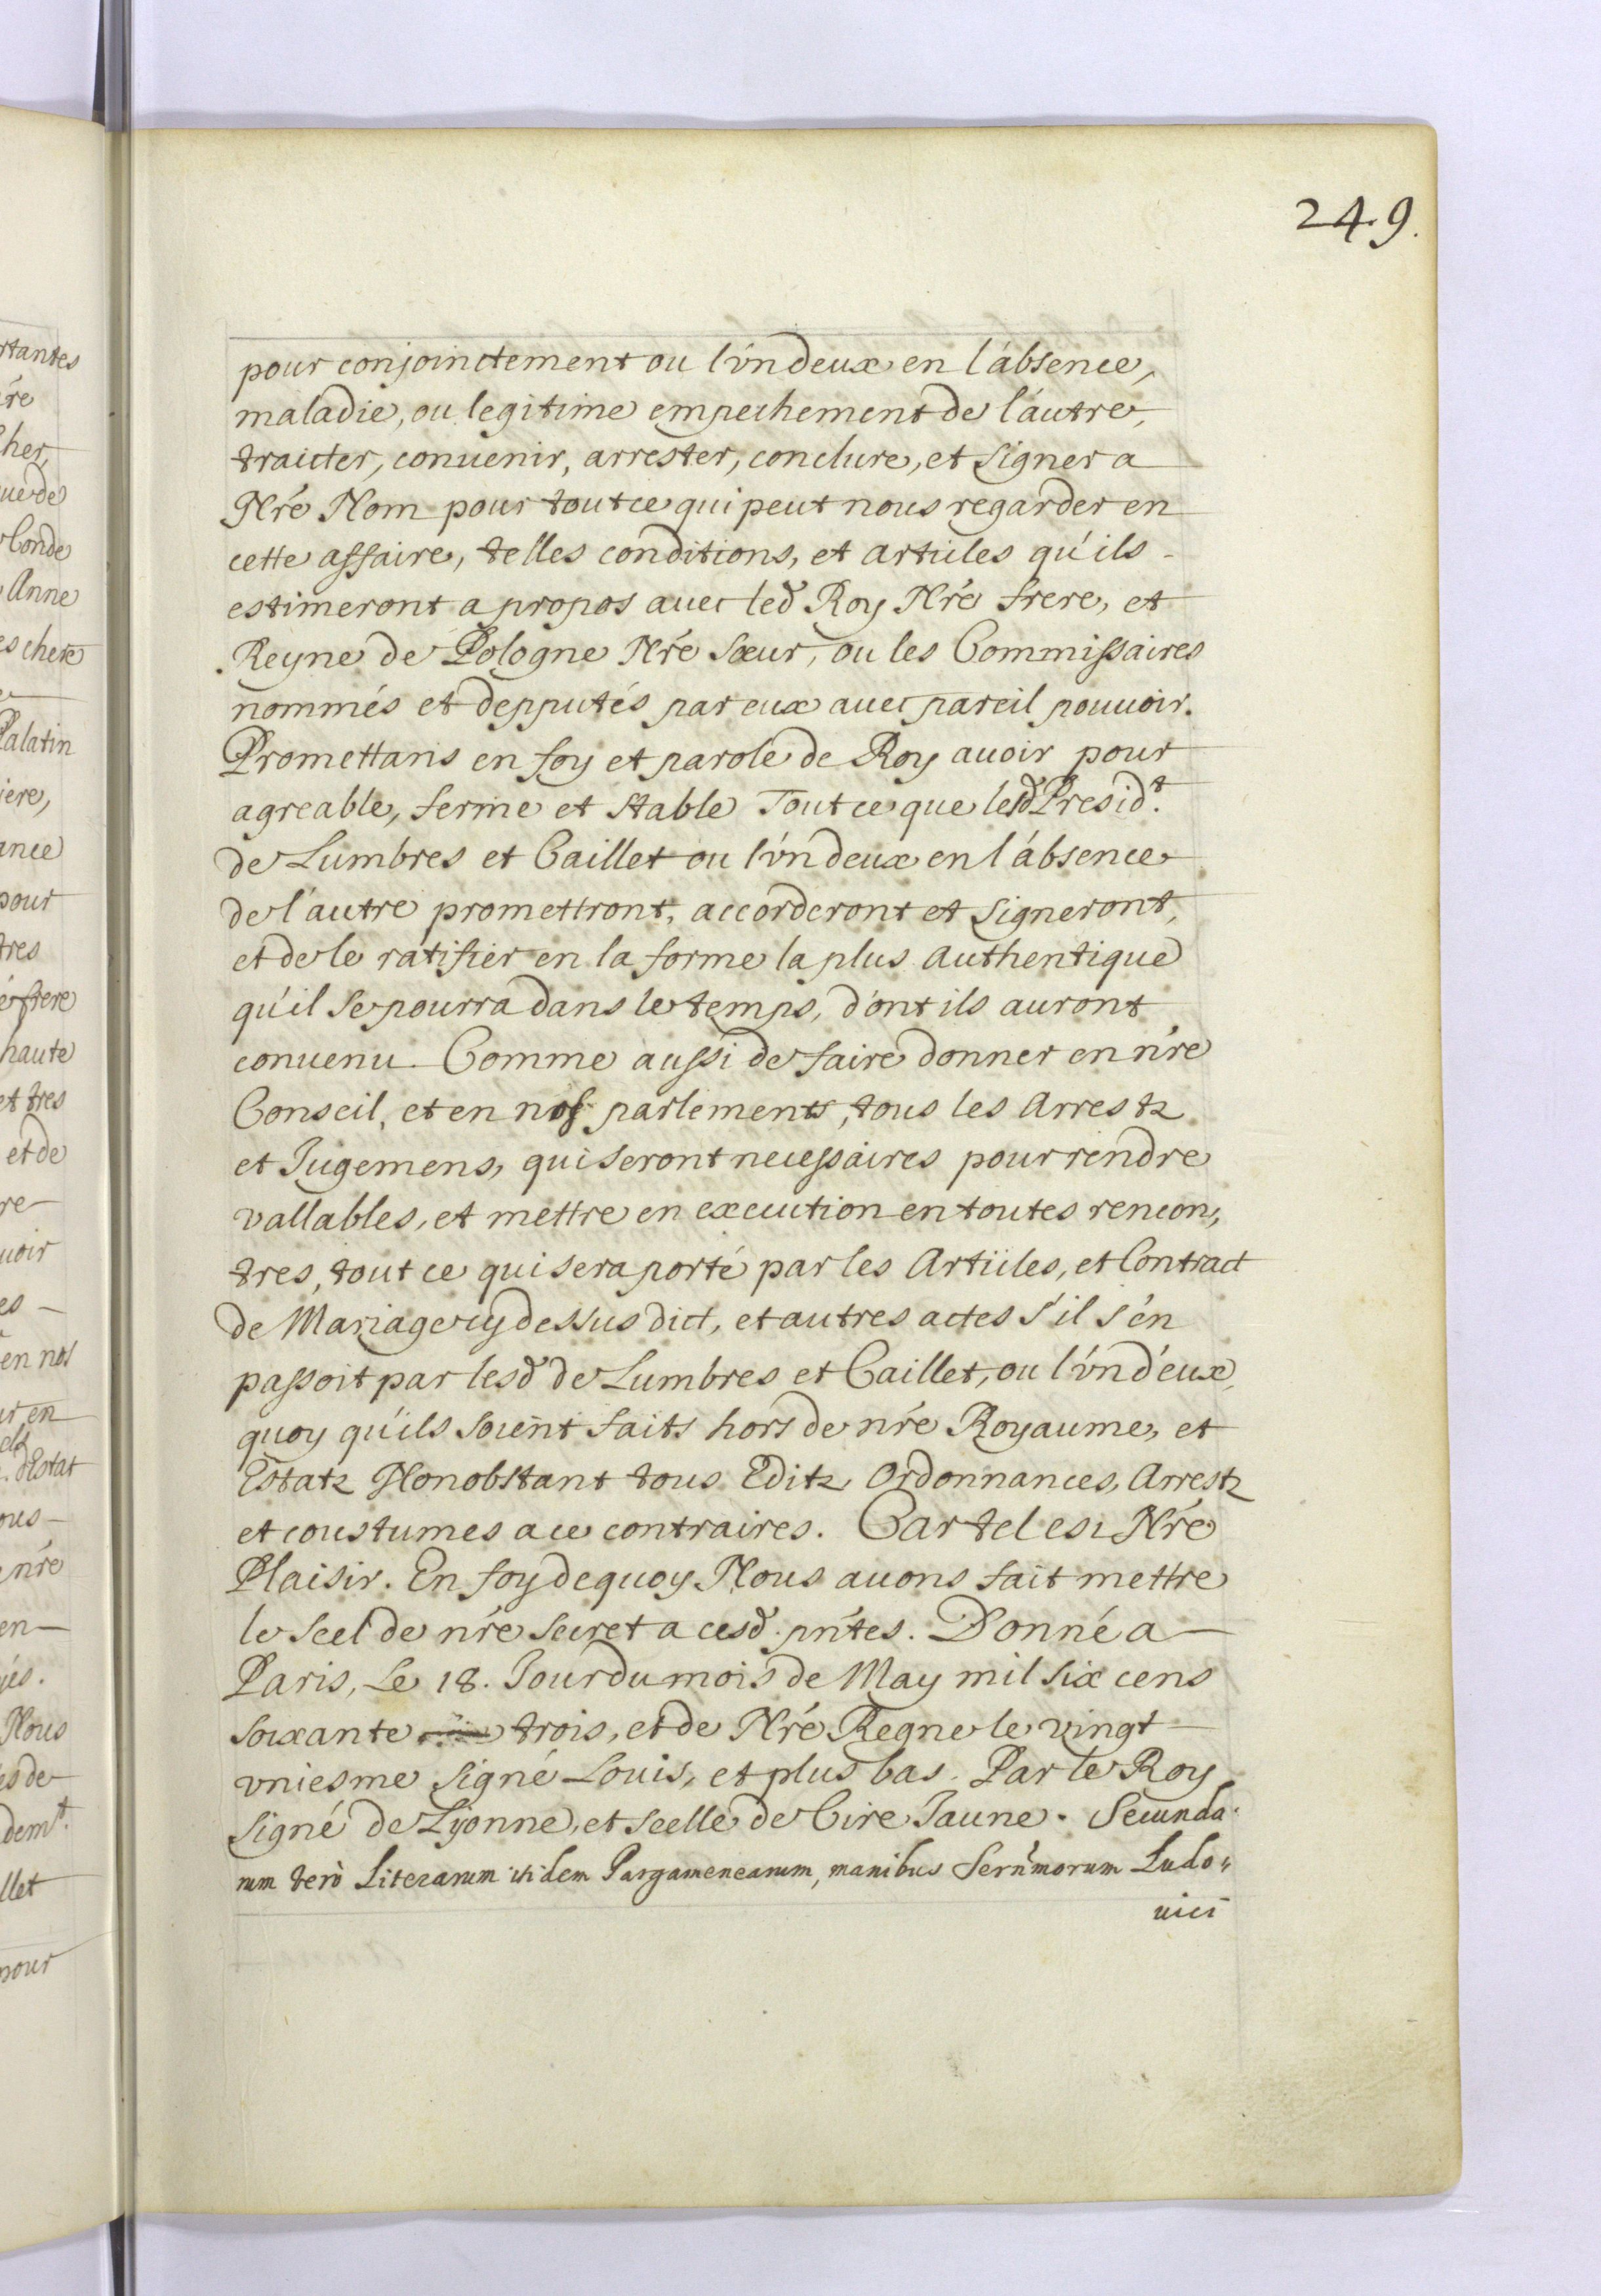 249.
pour conjoinctement ou l'vn deux en l'absence,
maladie, ou legitime empechement de l'autre,
traicter, conuenir, arrester, conclure, et signer a
Nr̃e Nom pour tout ce qui peut nous regarder en
cette affaire, telles conditions, et articles qu'ils
estimeront a propos auec led Roy Nr̃e frere, et
Reyne de Pologne Nr̃e sœur, ou les Commissaires
nommés et depputés par eux auec pareil pouuoir.
Promettans en foy et parole de Roy auoir pour
agreable, ferme et stable Tout ce que lesd Presidt.
de Lumbres et Caillet ou l'vn deux en l'absence
de l'autre promettront, accorderont et signeront,
et de le ratifier en la forme la plus authentique
qu'il se pourra dans le temps, d'ont ils auront
conuenu. Comme aussi de faire donner en nr̃e
Conseil, et en nos parlements, tous les Arrestz
et Jugemens, qui seront necessaires pour rendre
vallables, et mettre en execution en toutes rencon,
tres, tout ce qui sera porté par les Articles, et Contract
de Mariage cy dessus dict, et autres actes s'il s'en
passoit par lesd de Lumbres et Caillet, ou l'vn d'eux,
quoy qu'ils soient faits hors de nr̃e Royaume, et
Estatz Nonobstant tous Editz, Ordonnances, Arrestz
et coustumes a ce contraires. Car tel est Nr̃e
Plaisir. En foy de quoy Nous auons fait mettre
le scel de nr̃e secret a cesd. pñtes. Donné a
Paris, Le 18. Jour du mois de May mil six cens
soixante trois, et de Nr̃e Regne le vingt
vniesme signé Louis, et plus bas. Par le Roy
signé de Lyonne, et scellé de Cire Jaune. Secunda
rum verò Literarum itidem Pargamenearum, manibus Serñmorum Ludo„
uici
rtantes
r̃e
Cher,
ue de
Conde
Anne
es chere
Palatin
iere,
ance
pour
tres
frere
haute
et tres
et de
re
uoir
es
en nos
ur en
d'Estat
ous
nr̃e
en
Nous
es de
demt.
llet
pour